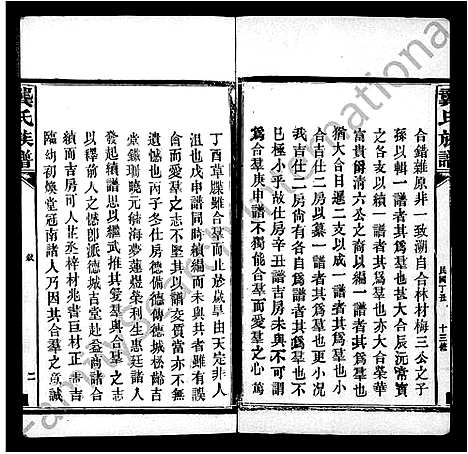 龔氏族譜
民國丁丑 十三修
合錯雜原非一致溯自合林材梅三公之子
孫以輯一譜者其爲羣也甚大合辰沅常寶
之各支以續一譜者其爲羣也亦大合榮華
富貴爵清六公之裔以成一譜者其爲羣也
猶大合日遷二支以成一譜者其爲羣也小
合吉仕二房以纂一譜者其爲羣也更小况
吉仕二房尚有各自爲譜者其爲羣也不
已極小乎故仕房辛丑譜吉房與不可謂
爲合羣庚申譜不獨能合羣愛羣之心爲
丁酉草牒雖合羣而止於歲旱由天定非人
沮也戊申譜同時續編而未與共雖有誤
會而愛羣之志不墮其以譜嗣當亦不無
遺憾也丙子冬仕房德備德傳德城松齡吉
堂鑑珊曉元紬海夢蓮煜榮集生惠廷諸人
發起續譜思以繼武推其愛羣與合羣之志
以釋前人之憾卽派德城吉堂赴益商諸合
續而吉房可人丕承梓材兆書巨材正
臨幼初煥堂冠南諸人乃因其合羣之意誠
龔氏族譜
敘
二
Family International